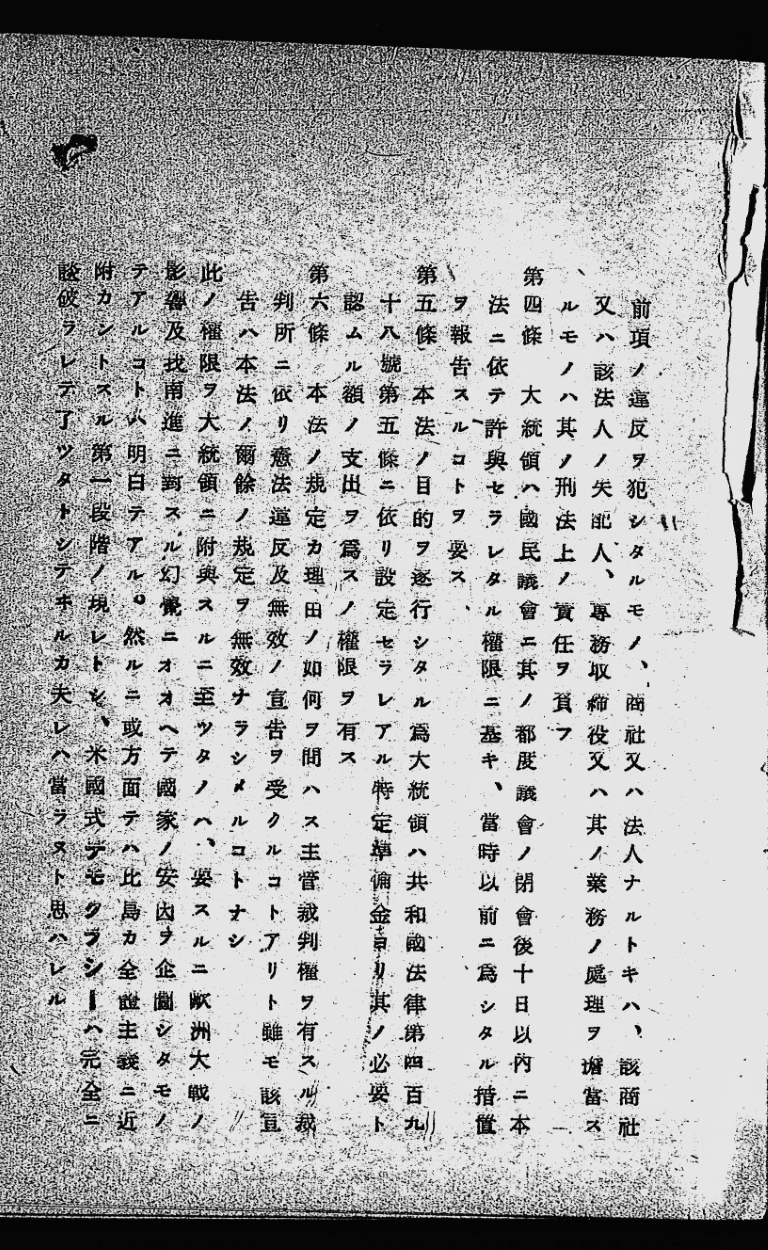 前項ノ違反ヲ犯シタルモノ、商社又ハ法人ナルトキハ、該商社
又ハ該法人ノ支配人、專務取締役又ハ其ノ業務ノ處理ヲ擔當ス
ルモノハ其ノ刑法上ノ責任ヲ負フ
第四條　大統領ハ國民議會ニ其ノ都度議會ノ閉會後十日以內ニ本
法ニ依テ許與セラレタル權限ニ基キ、當時以前ニ爲シタル措置
ヲ報告スルコトヲ要ス、
第五條　本法ノ目的ヲ遂行シタル爲大統領ハ共和國法律第四百九
十八號第五條ニ依リ設定セラレアル特定準備金ヨリ其ノ必要ト
認ムル額ノ支出ヲ爲スノ權限ヲ有ス
第六條　本法ノ規定カ理由ノ如何ヲ問ハス主管裁判權ヲ有スル裁
判所ニ依リ憲法違反及無效ノ宣告ヲ受クルコトアリト雖モ該宣
告ハ本法ノ爾餘ノ規定ヲ無效ナラシメルコトナシ
此ノ權限ヲ大統領ニ附與スルニ至ツタノハ、要スルニ歐洲大戰ノ
影響及我南進ニ對スル幻覺ニオオヘテ國家ノ安固ヲ企圖シタモノ
テアルコトハ明白テアル。然ルニ或方面テハ比島カ全體主義ニ近
附カントスル第一段階ノ現レトシ、米國式デモクラシーハ完全ニ
破ラレテ了ツタトシテホルカ夫レハ當ラヌト思ハレル